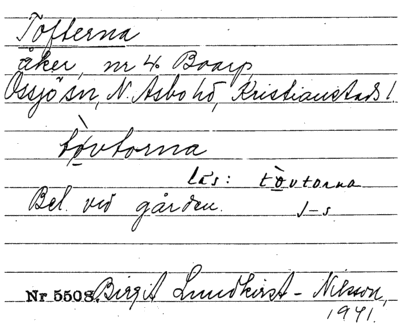 Tofterna
åker, nr 4 Boarp,
Össjö sn, N. Åsbo hd, Kristianstads l
tòvtorna
läs: tòvtorna
Bel. vid gården. J-s
Nr 5508. Birgit Lundkvist - Nilsson,
1941.